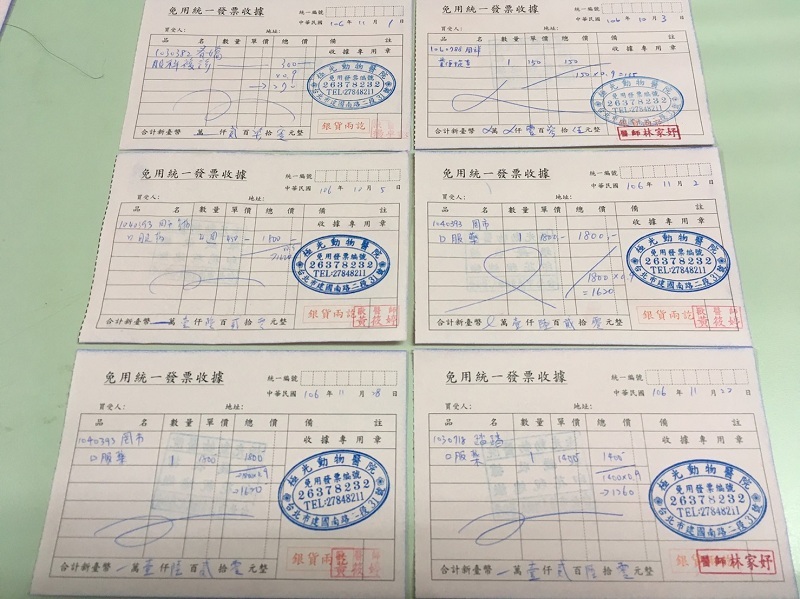 免用統一發票收據
統一編號
中華民國 106 年 11 月 9 日
買受人: 地址:
品 名 數量 單價 總價 備 註
收據專用章
300
極光動物醫院
免用發票編號
26378232
TEL:27848211
台北市建國南路二段31號
銀貨兩訖
合計新臺幣 萬 仟 貳 百 柒 拾 壹 元整
免用統一發票收據
統一編號
中華民國 106 年 10 月 3 日
買受人: 地址:
品 名 數量 單價 總價 備 註
收據專用章
1 150 150
150×0.9=135
極光動物醫院
免用發票編號
26378232
TEL:27848211
醫師 林家妤
合計新臺幣 萬 仟 壹 百 拾 伍 元整
免用統一發票收據
統一編號
中華民國 106 年 10 月 5 日
買受人: 地址:
品 名 數量 單價 總價 備 註
收據專用章
1040393 周市
口服藥 1800
極光動物醫院
免用發票編號
26378232
TEL:27848211
台北市建國南路二段31號
銀貨兩訖
合計新臺幣 萬 壹 仟 陸 百 貳 拾 零 元整
免用統一發票收據
統一編號
中華民國 106 年 11 月 2 日
買受人: 地址:
品 名 數量 單價 總價 備 註
收據專用章
1040393 周市
口服藥 1 1800 1800
1800×0.9
=1620
極光動物醫院
免用發票編號
26378232
TEL:27848211
台北市建國南路二段31號
銀貨兩訖
合計新臺幣 萬 壹 仟 陸 百 貳 拾 零 元整
免用統一發票收據
統一編號
中華民國 106 年 11 月 28 日
買受人: 地址:
品 名 數量 單價 總價 備 註
收據專用章
1040393 周市
口服藥 1 1800 1800
1800×0.9
=1620
極光動物醫院
免用發票編號
26378232
TEL:27848211
台北市建國南路二段31號
銀貨兩
合計新臺幣 萬 壹 仟 陸 百 貳 拾 零 元整
免用統一發票收據
統一編號
中華民國 106 年 11 月 22 日
買受人: 地址:
品 名 數量 單價 總價 備 註
收據專用章
1030718
口服藥 1 1400 1400
1400×0.9
1260
極光動物醫院
免用發票編號
26378232
TEL:27848211
台北市建國南路二段31號
醫師 林家妤
合計新臺幣 萬 壹 仟 貳 百 陸 拾 零 元整